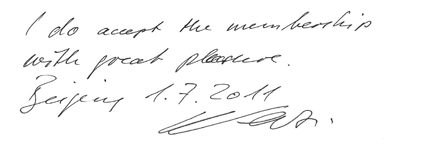 I do accept the membership
with great pleasure.
Beijing 1.7.2011